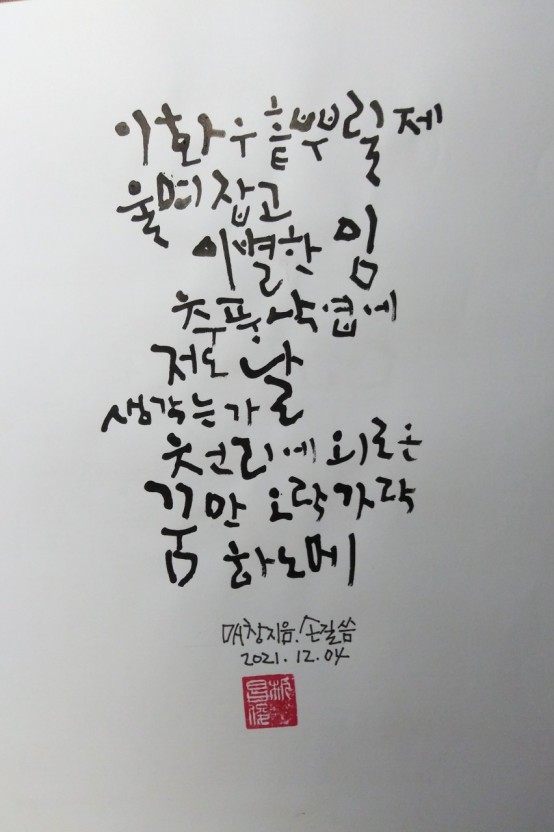 이화우 흩뿌릴 제
울며 잡고
이별한 임
추풍낙엽에
저도 날
생각는가
천리에 외로운
꿈만 오락가락
하노메
매창지음. 손길씀
2021.12.04